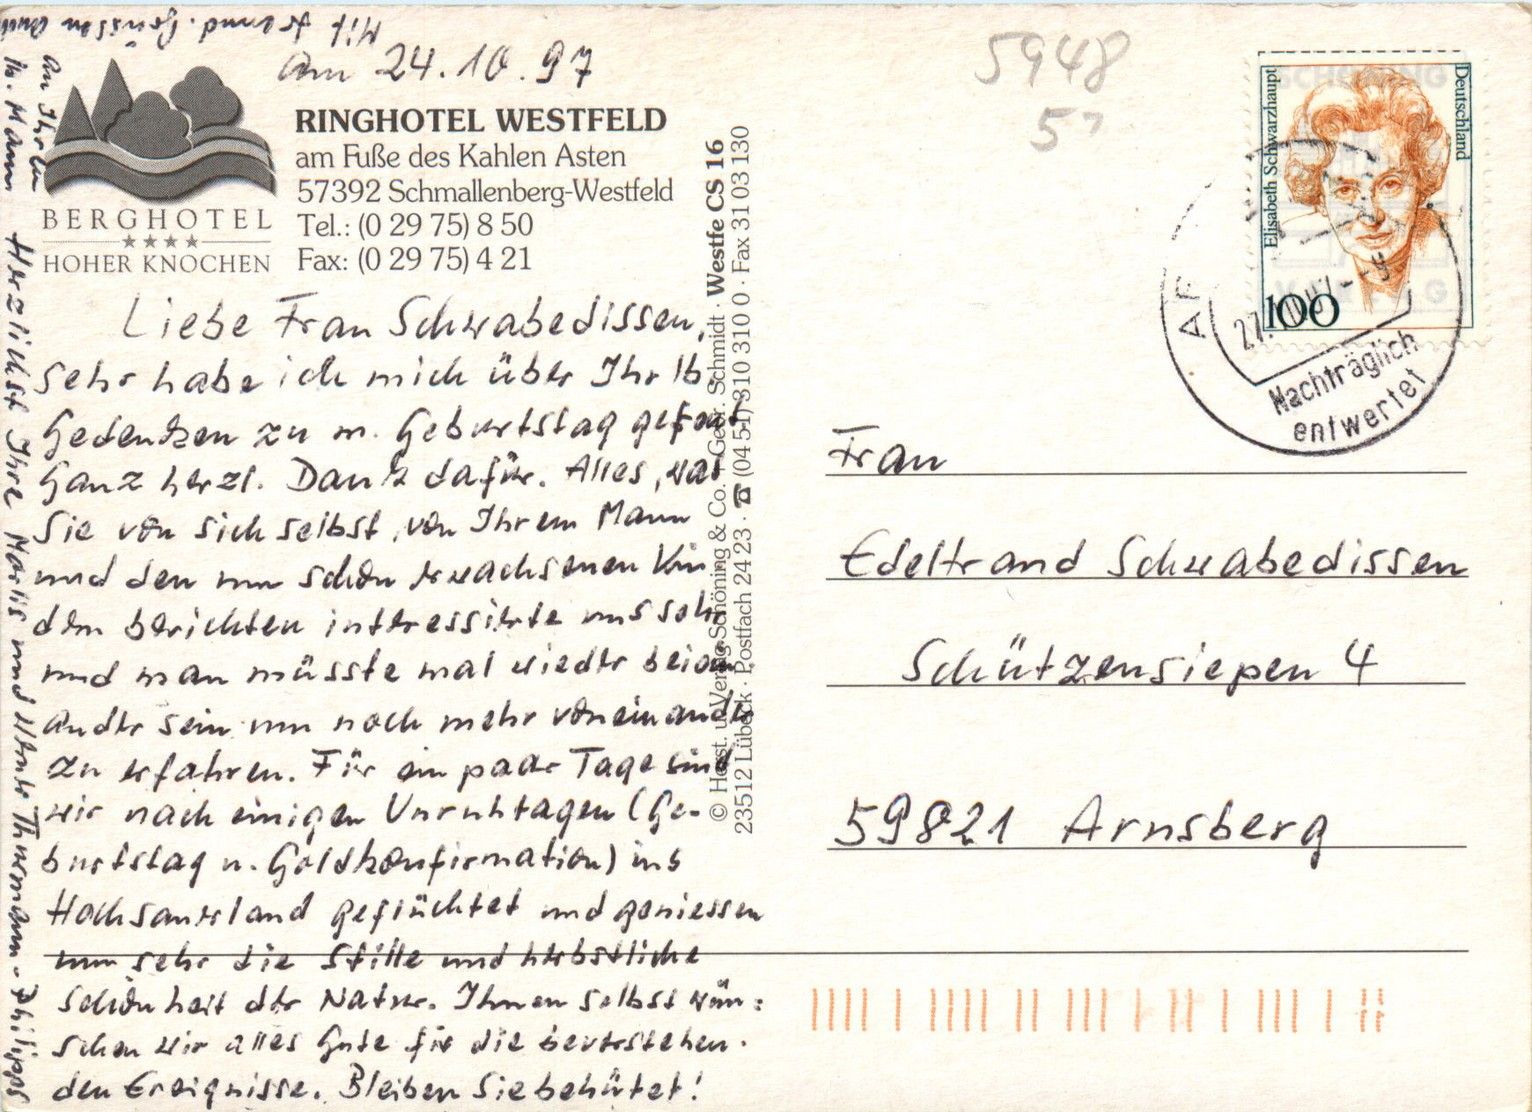 Am 24.10.97
BERGHOTEL
HOHER KNOCHEN
RINGHOTEL WESTFELD
am Fuße des Kahlen Asten
57392 Schmallenberg-Westfeld
Tel.: (0 29 75) 8 50
Fax: (0 29 75) 4 21
Liebe Frau Schwabedissen,
sehr habe ich mich über Ihr lb
Gedenken zu m. Geburtstag gefreut
Ganz herzl. Dank dafür. Alles, was
Sie von sich selbst, von Ihrem Mann
und den nun schon erwachsenen Kin
dern berichten interessierte uns sehr
und man müsste mal wieder beiein
ander sein um noch mehr voneinander
zu erfahren. Für ein paar Tage sind
wir nach einigen Unruhtagen (Ge-
burtstag u. Goldkonfirmation) ins
Hochsauerland geflüchtet und geniessen
nun sehr die Stille und herbstliche
Schönheit der Natur. Ihnen selbst wün:
schen wir alles Gute für die bevorstehen-
den Ereignisse. Bleiben Sie behütet!
Herzlichst Ihre Marlis und Werner Thurmann-Philipps
Mit freundl. Grüssen auch
an Ihren
lb. Mann
© Horst. u. Verlag Schöning & Co. + Gebr. Schmidt · Westfe CS 16
23512 Lübeck · Postfach 24 23 · ☎ (04 51) 310 310 0 · Fax 31 03 130
5948
5,
Deutschland
Elisabeth Schwarzhaupt
100
Nachträglich
entwertet
Frau
Edeltraud Schwabedissen
Schützensiepen 4
59821 Arnsberg